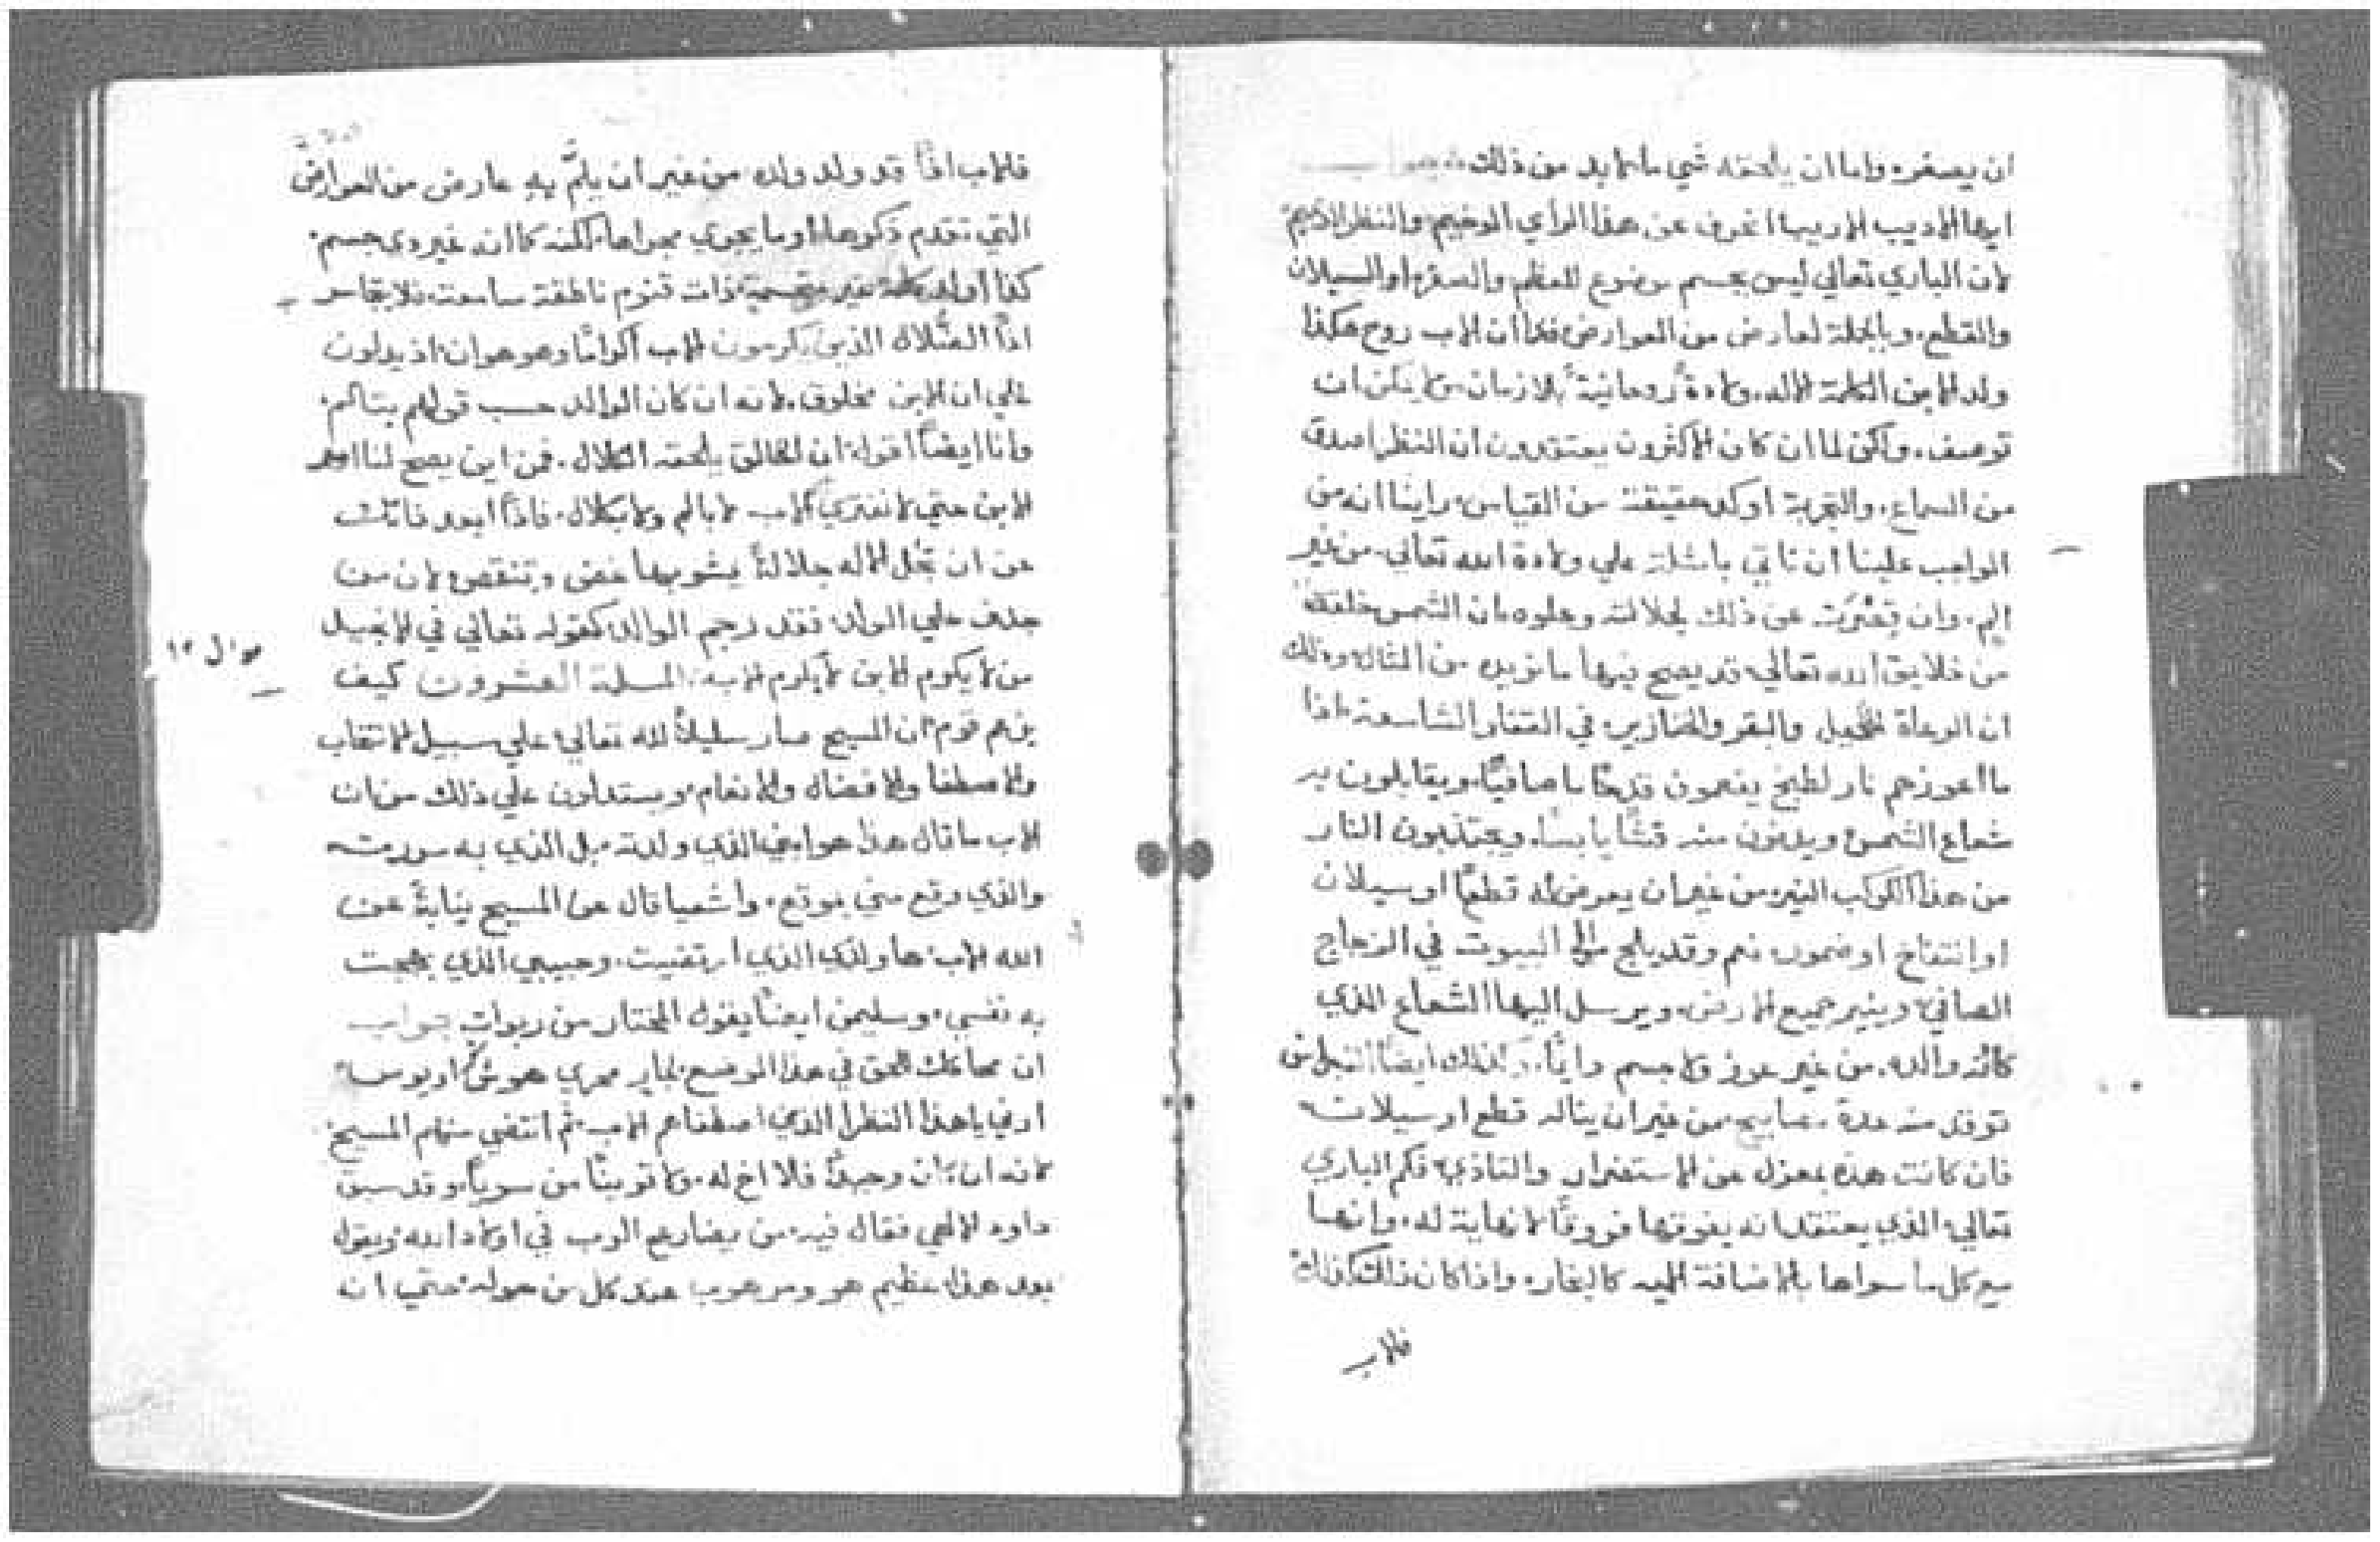 ان يصغره واما ان يلحقه شي ما لا بد من ذلك
ايها الاديب الاريب انحرف عن هذا الراي الوخيم والنظر الذميم
لان الباري تعالي ليس بجسم موضوع للعظم والصغر او السيلان
والقطع. وبالجملة لعارض من العوارض فكما ان الاب روح هكذا
ولد الابن الكلمة الاله. ولادةً روحانيةً بلا زمان ولا يمكن ان
توصف. ولكن لما ان كان الاكثرون يعتقدون ان النظر اصدق
من السماع. والتجربة اوكد حقيقة من القياس. راينا انه من
الواجب علينا ان ناتي بامثلة علي ولادة الله تعالي. من غير
الم. وان قصّرت عن ذلك لجلالته وعلوه لان الشمس خلقة
من خلايق الله تعالي قد يصح فيها ما نريده من المثال وذلك
ان الرعاة للخيل والبقر والخنازير في القفار الشاسعة اذا
ما اعوزهم نار لطبخ يفعمون قدحًا ماءً صافيًا. ويقابلون به
شعاع الشمس ويدنون منه قشًّا يابسًا. ويجتذبون النار
من هذا الكوكب النير من غير ان يعرض له قطعًا او سيلان
او انتفاخ او ضمور نعم وقد يلج الي البيوت في الزجاج
الصافي وينير جميع الارض. ويرسل اليها الشعاع الذي
كانه والده. من غير عوز ولا جسم ايضًا
توقد منه عدة مصابيح من غير ان يناله قطع او سيلان
فان كانت هذه بمعزل عن الاستضرار والتاذي فكم الباري
تعالي الذي يعتقد انه يفوقها فروقًا لا نهاية له. وانها
مع كل ما سواها بالاضافة اليه كالبخار. واذا كان ذلك كذلك
فالاب
فالاب اذًا قد ولد ولده من غير ان يلمّ به عارض من العوارض
التي تقدم ذكرها او ما يجري مجراها. لكنه كما انه غير ذي جسم.
كذا اولد كلمة غير متجسمة ذات قنوم ناطقة سامعة فلا
اذًا الضُّلال الذين يكرمون الاب اكرامًا وهو هوان اذ يدلون
علي ان الابن مخلوق. لانه ان كان الوالد حسب قولهم يتالم.
وانا ايضًا اقول ان الخالق يلحقه الكلال. فمن اين يصح لنا
الابن حتي لا نفتري الاب لا بالم ولا بكلال. فاذًا ابعد
عن ان تجل الاله جلالةً يشوبها غض وتنقص لان من
جدف علي الولد فقد رجم الوالد كقوله تعالي في الانجيل
من لا يكرم الابن لا يكرم الاب المسلة العشرون كيف
يزعم قوم ان المسيح صار سليلاً لله تعالي علي سبيل الانتخاب
والاصطفا والافضال والانعام ويستدلون علي ذلك من ان
الاب ما قال هذا هو ابني الذي ولدته بل الذي به سررت
والذي وقع مني بموقع. واشعيا قال عن المسيح نيابةً عن
الله الاب ها ولدي الذي ارتضيت. وحبيبي الذي بهجت
به نفسي. وسليمن ايضًا يقول المختار من ربوات جواب
ان محاغك الحق في هذا الموضع اريوس
ارني يا هذا النظرا الذي اصطفاهم الاب ثم انتقي منهم المسيح
لانه ان كان وحيدًا فلا اخ له. ولا قرينًا من سوياه وقد سبق
داود الالهي فقال فيه من يضارع الرب في اولاد الله ويقول
بعد هذا عظيم هو ومرهوب عند كل من حوله حتي ان
سوال ١٢